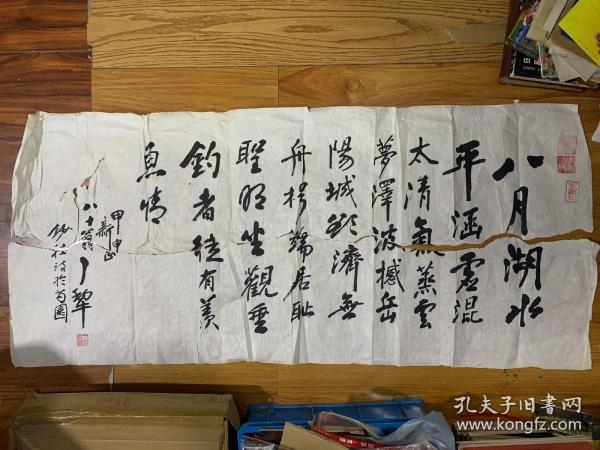 八月湖水
平涵虛混
太清氣蒸雲
夢澤波撼岳
陽城欲濟無
舟楫端居恥
聖明坐觀垂
釣者徒有羨
魚情
甲申
八十翁
孔夫子旧书网
www.kongfz.com